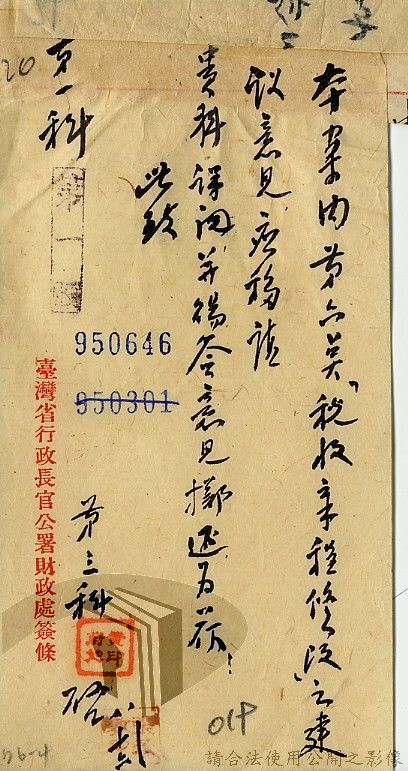 本案內第六美「稅收章程修改」之建
議意見應移請
貴科詳閱並備答意見擲還為荷！
此致
第一科
第一
950646
950301
臺灣省行政長官公署財政處簽條
第三科
啓
八
20
019
26-4
請合法使用公開之影像